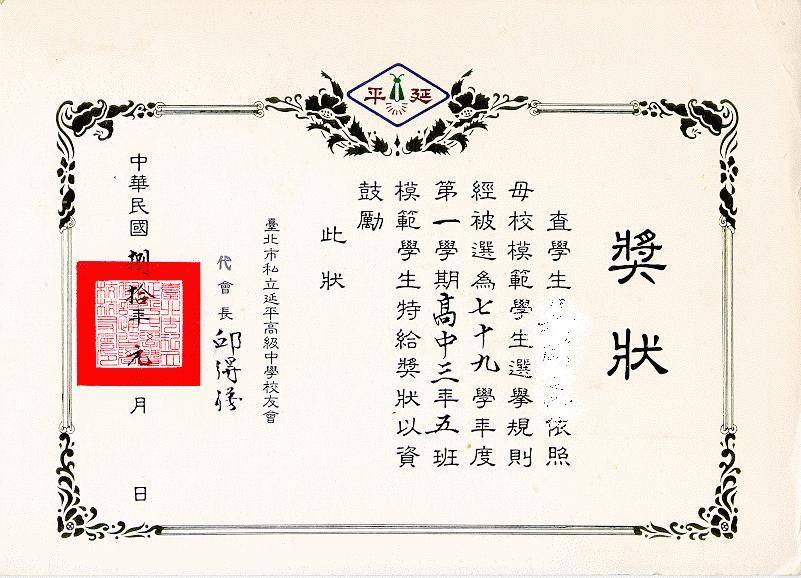 平延
獎狀
查學生依照
母校模範學生選舉規則
經被選為七十九學年度
第一學期高中三年五班
模範學生特給獎狀以資
鼓勵
此狀
臺北市私立延平高級中學校友會
代會長
中華民國捌拾年元月 日